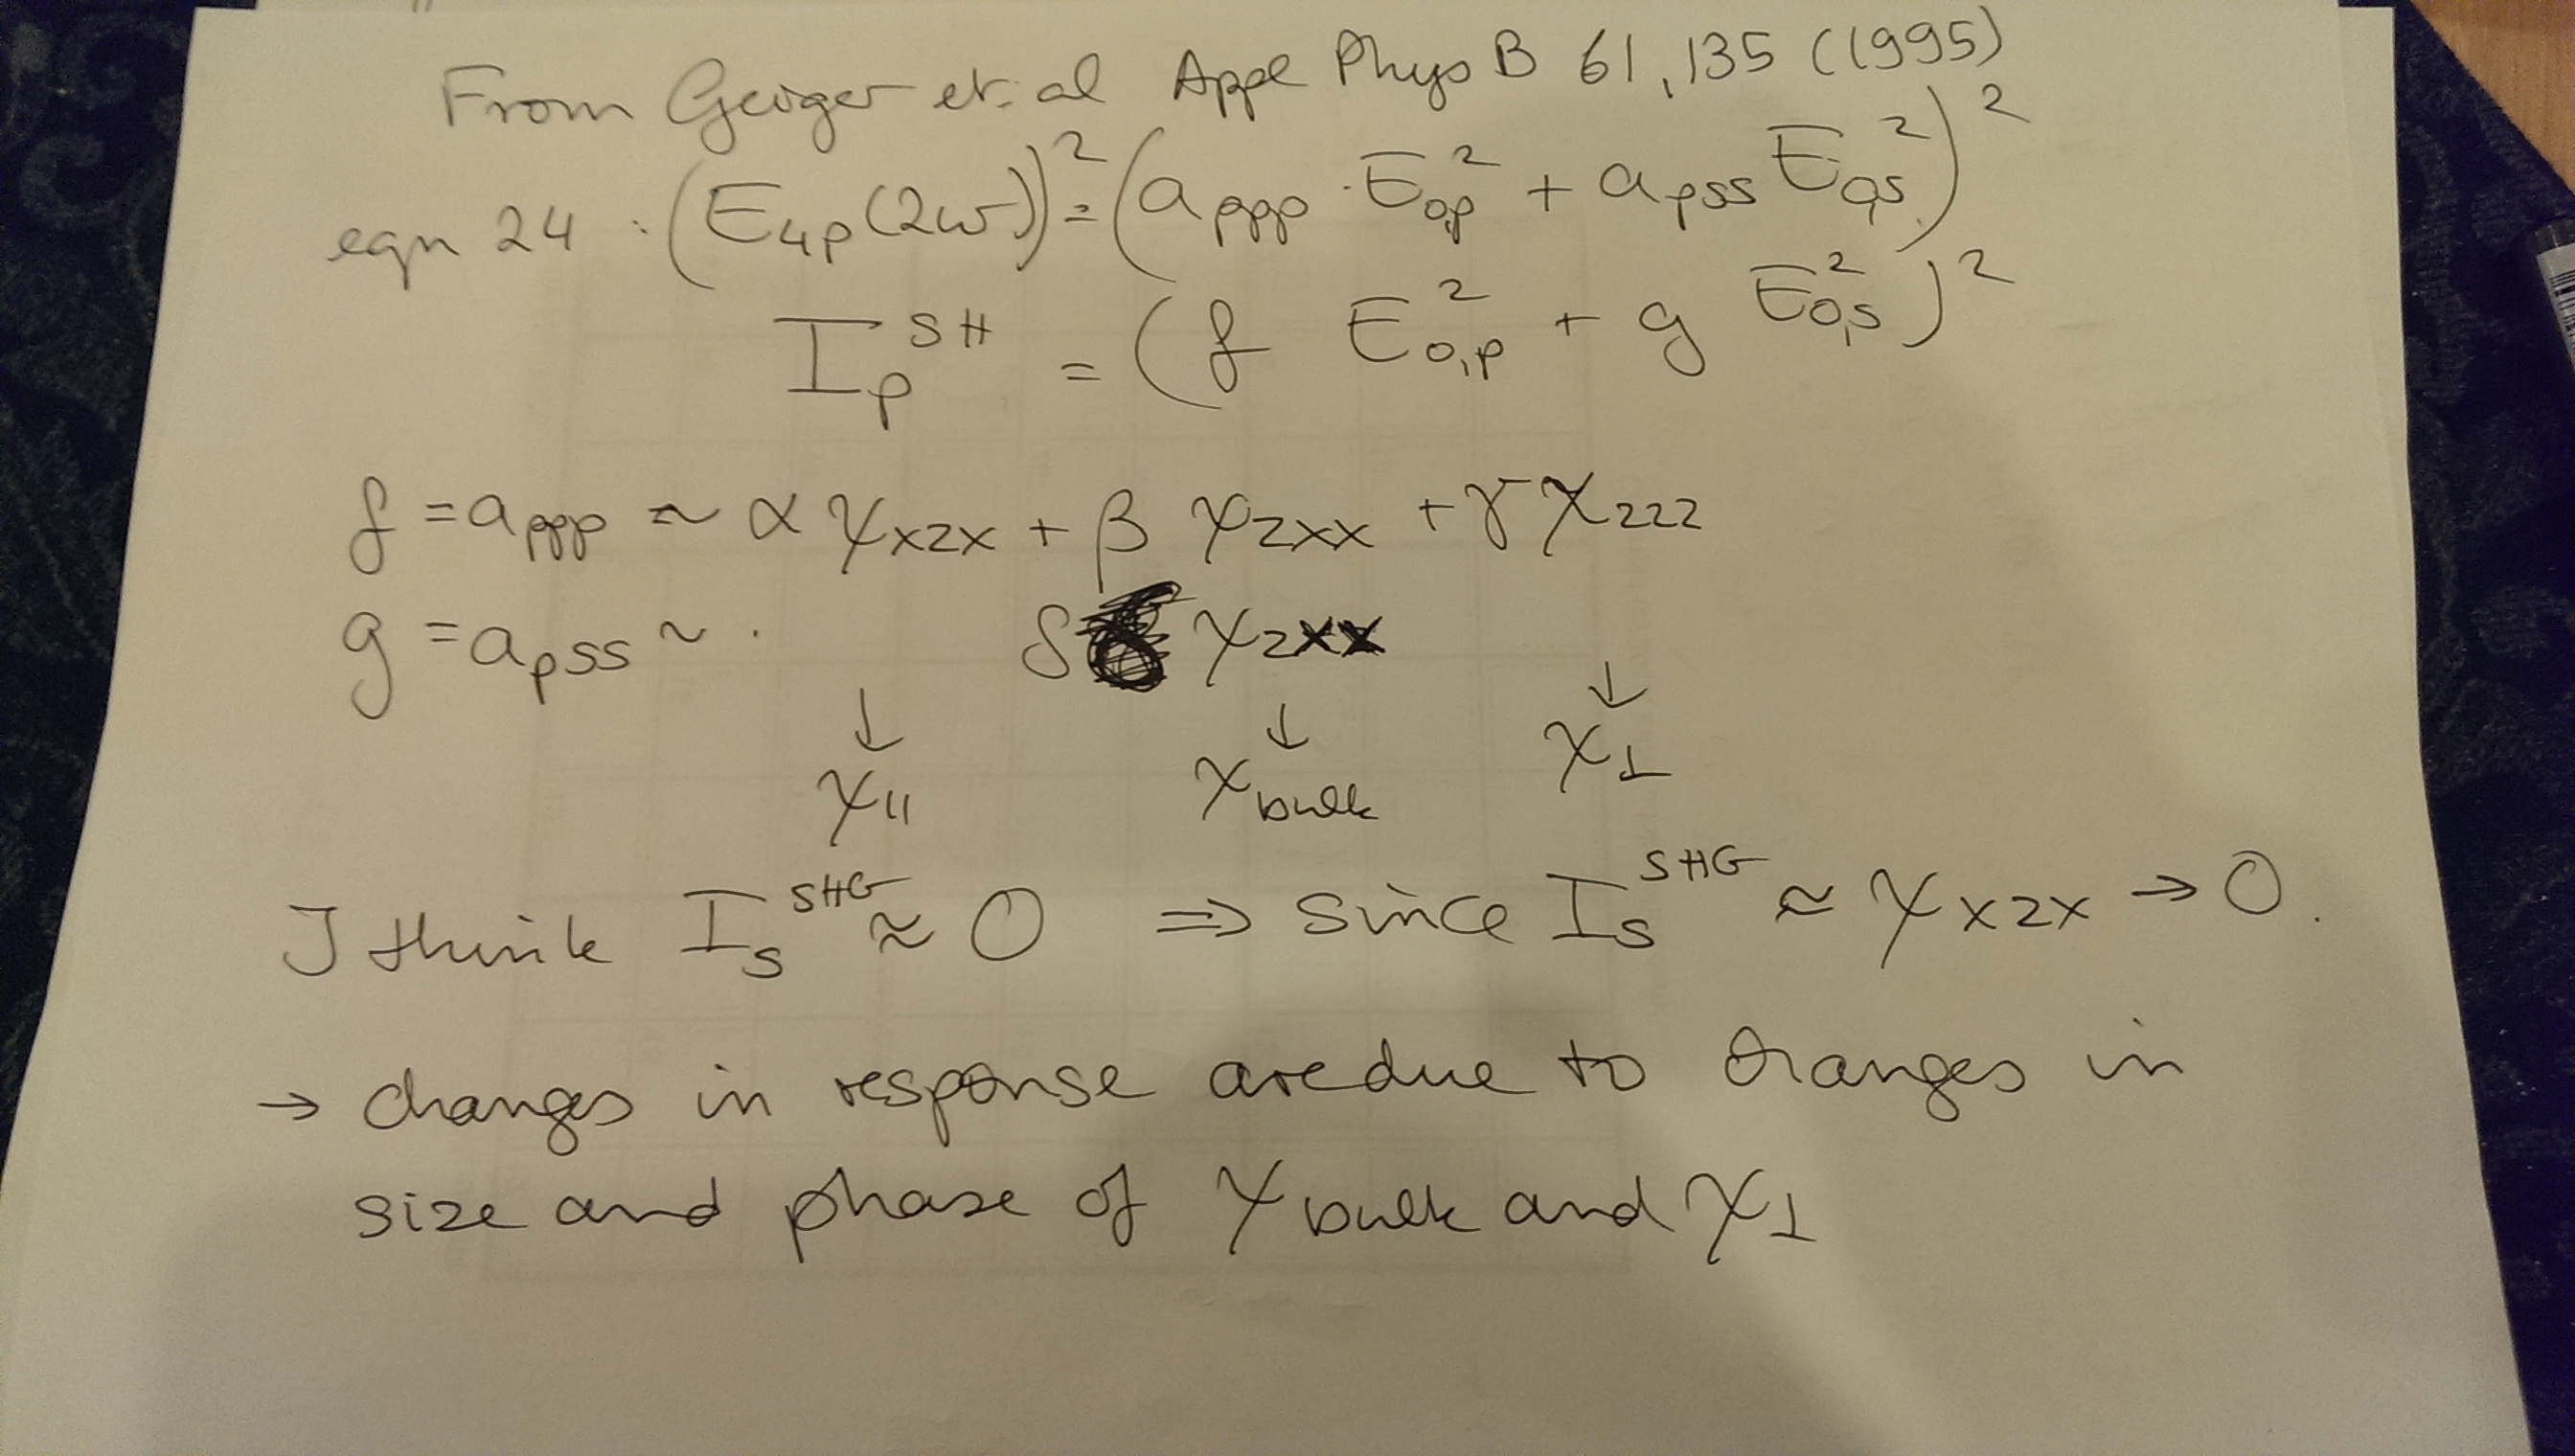 From Geiger et. al Appl Phys B 61, 135 (1995)
eqn 24 : (E₄p(2ω))² = (a ppp · E₀,p² + a pss E₀,s²)²
I_p^SH = (f E₀,p² + g E₀,s²)²
f = a ppp ~ α χ xzx + β χ zxx + γ χ zzz
g = a pss ~ . δ χ zxx
↓ ↓ ↓
χ ∥ χ bulk χ ⊥
I think I_s^SHG ≈ 0 ⇒ since I_s^SHG ≈ χ xzx → 0.
→ changes in response are due to changes in
size and phase of χ bulk and χ ⊥